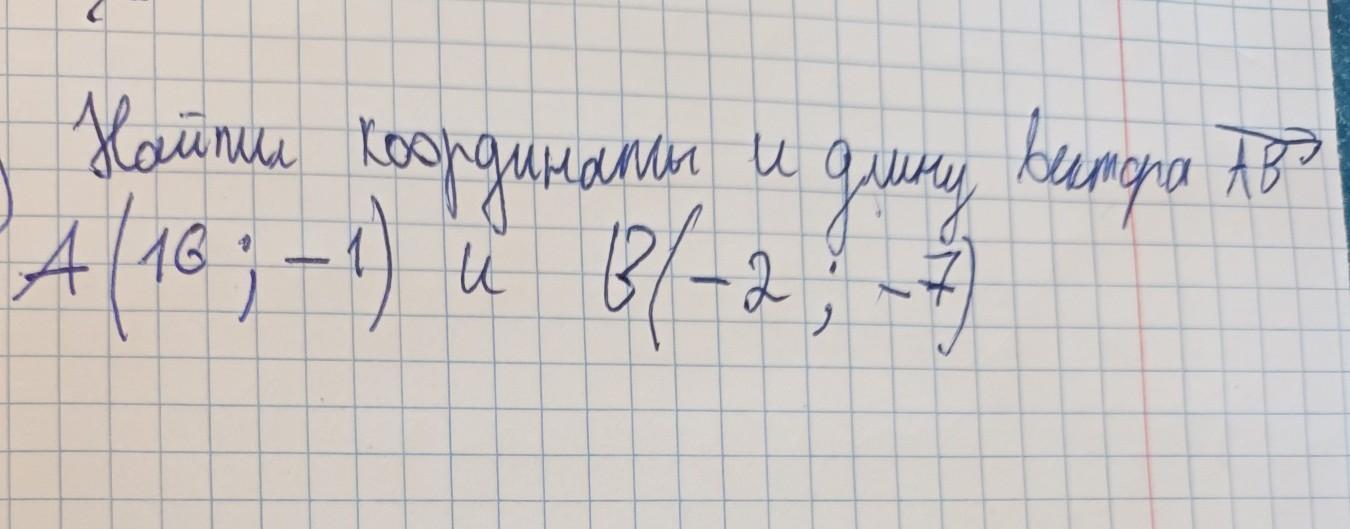 Найти координаты и длину вектора AB
A(16; -1) и B(-2; -7)